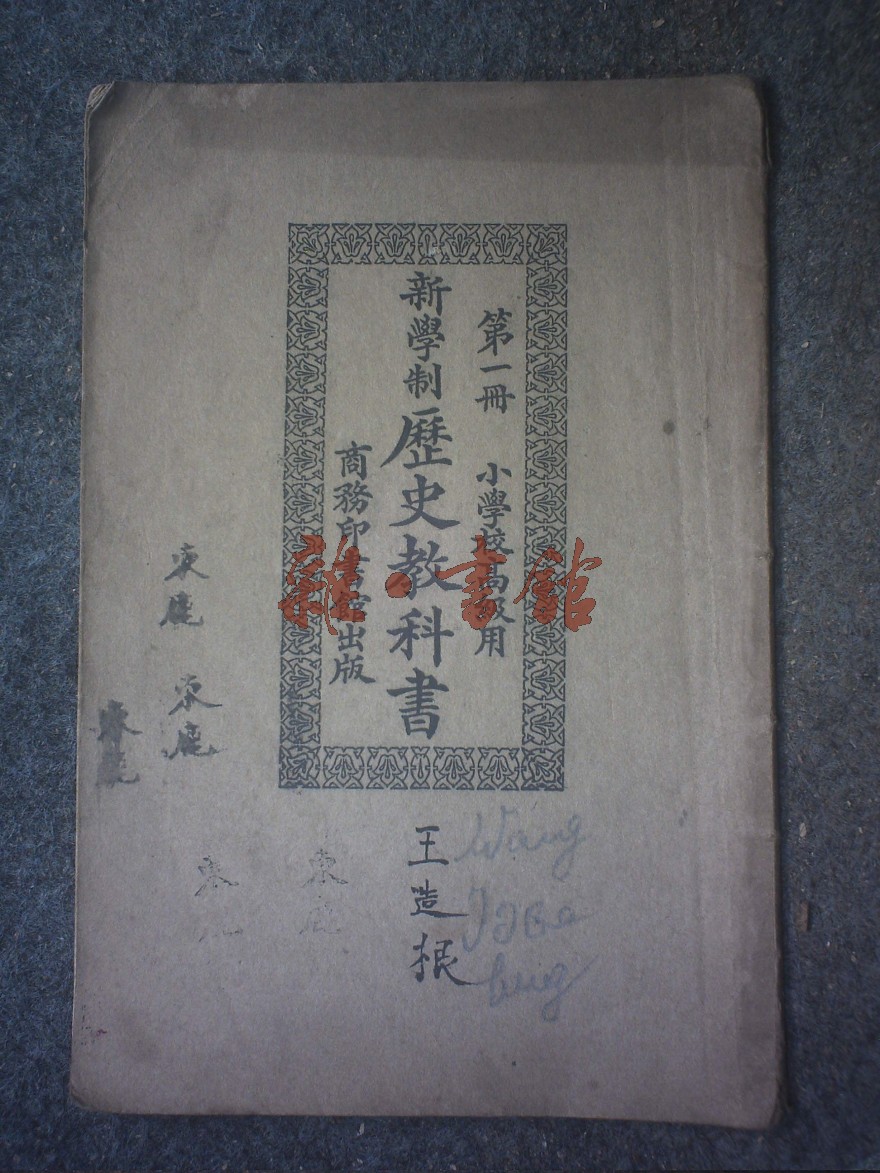 第一冊 小學校高級用
新學制歷史教科書
商務印書館出版
雜·書館
東鹿
東鹿
東鹿
東
東鹿
王造根
Wang